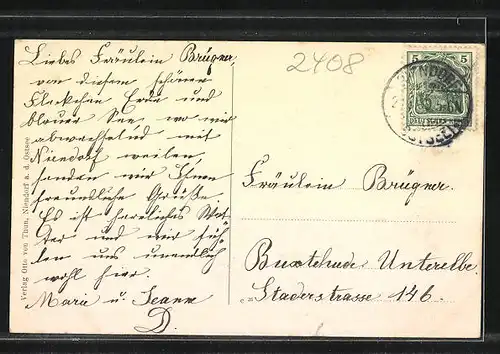 Liebes Fräulein Brügner,
von diesem schönen
Fleckchen Erde und
blauer See wo wir
abwechselnd mit
Niendorf weilen,
senden wir Ihnen
freundliche Grüße.
Es ist herrliches Wet-
ter und wir füh-
len uns unendlich
wohl hier.
Marie u. Jeanne
D.
Verlag Otto von Thun, Niendorf a. d. Ostsee
2408
5 5
NIENDORF
(OSTSEE)
Fräulein Brügner.
Buxtehude Unterelbe.
Staderstrasse 146.